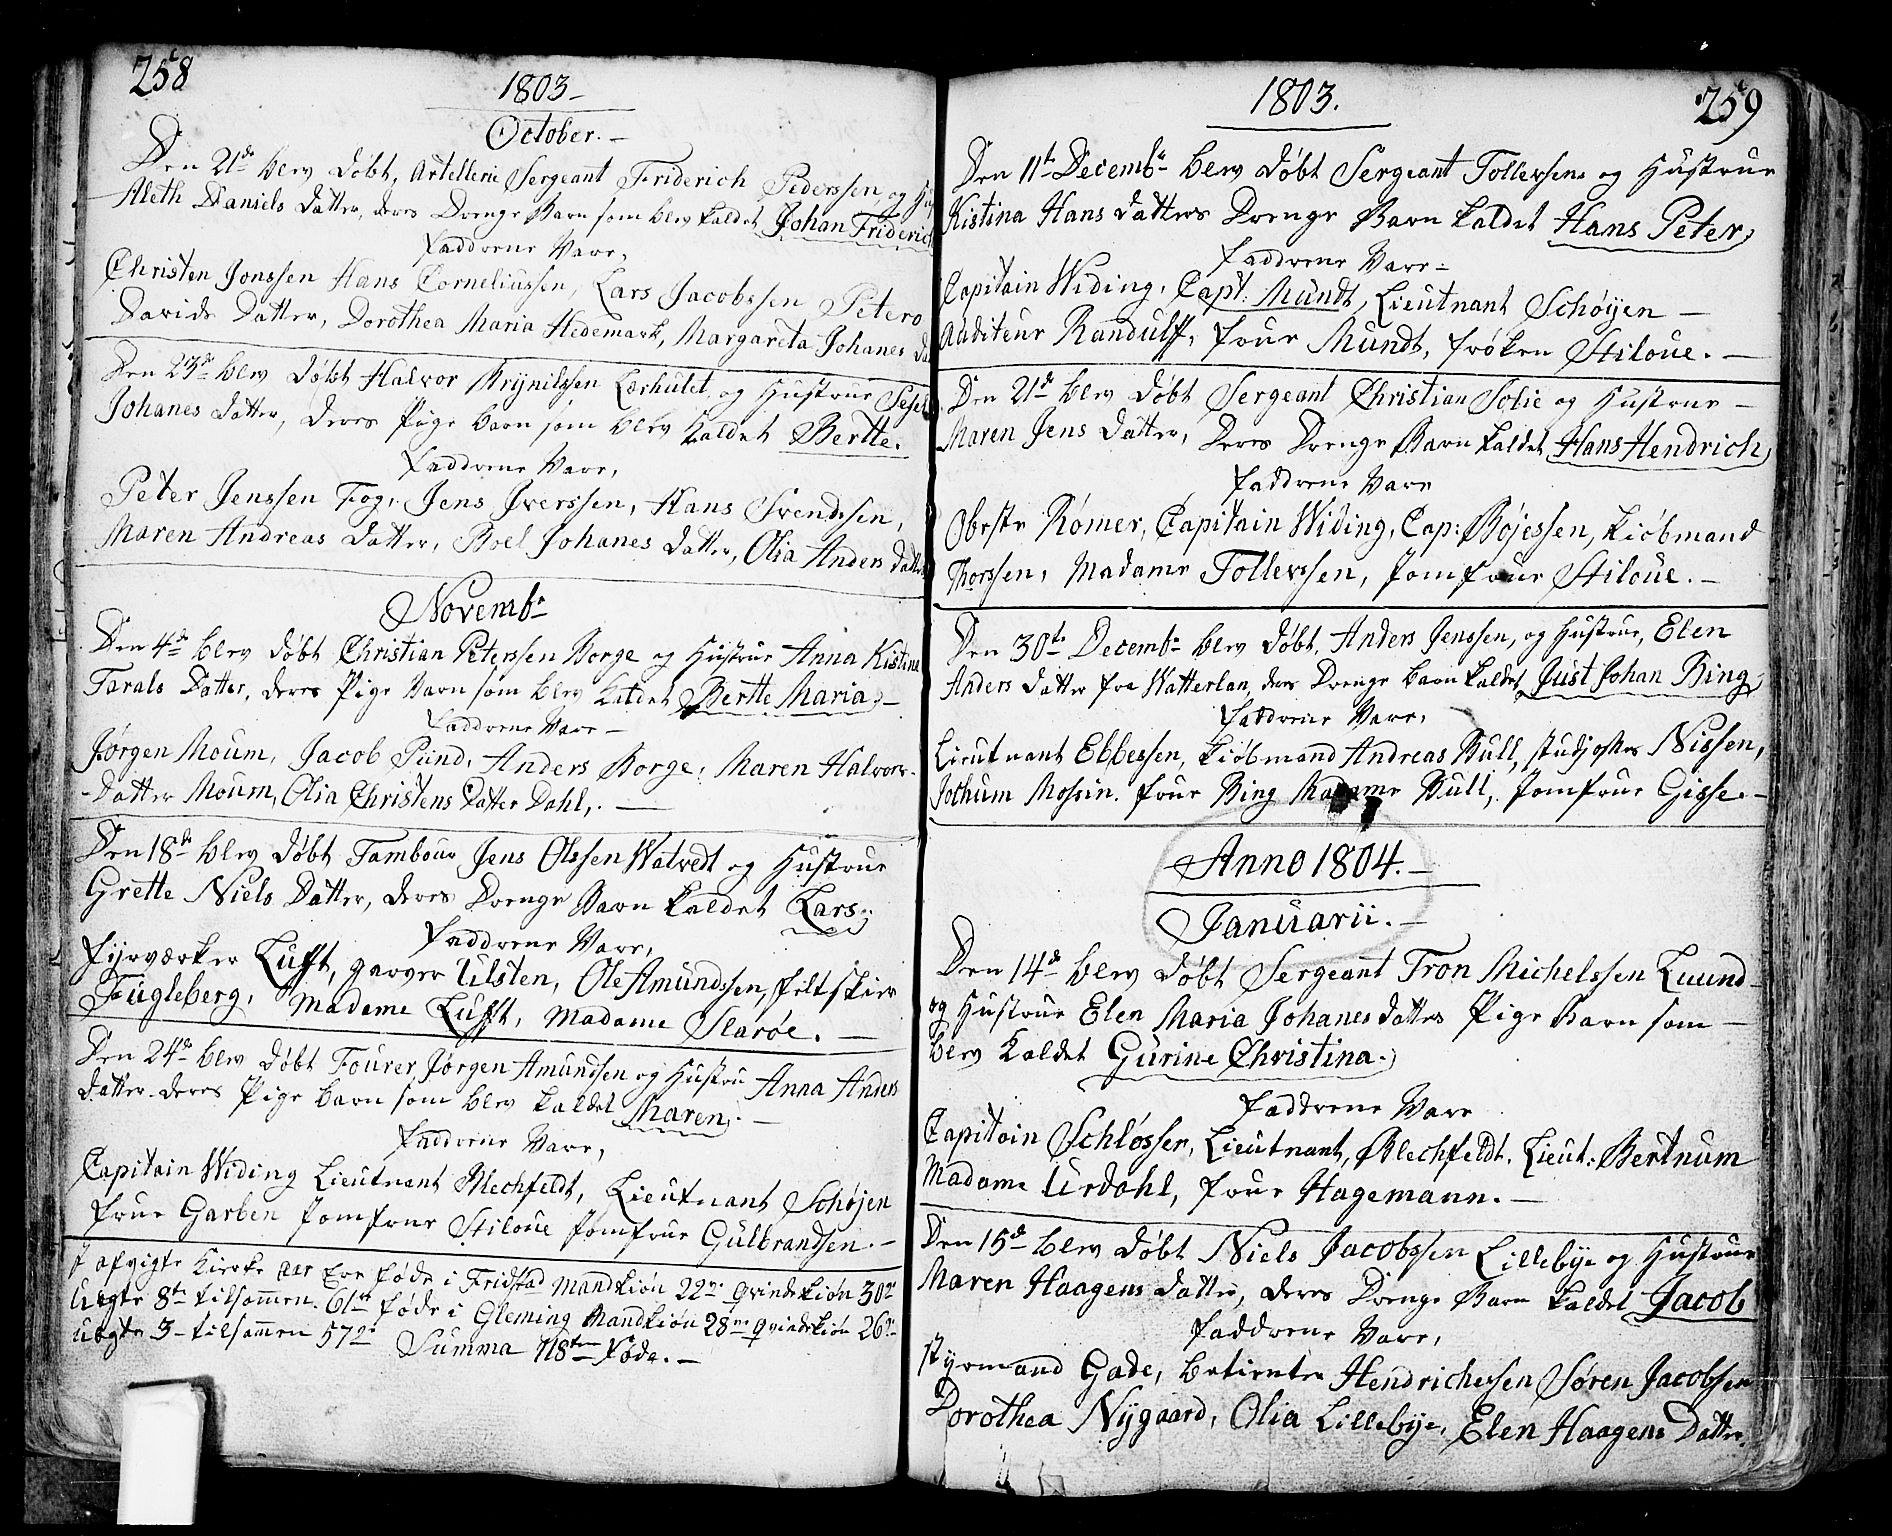 258
1803-
October.-
Den 21de blev døbt, Artellerie Sergeant Friderich Pederssen, og
Aleth Daniels datter, deres Drenge Barn som blev kaldet Johan Friderich
Faddrene Vare,
Christen Jonssen Hans Corneliussen, Lars Jacobssen Petero
Davids Datter, Dorothea Maria Hedemark, Margareta Johanes
Den 23de blev døbt Halvor Brynilssen Lerhulet, og Hustrue
Johanes datter, deres Pige barn som blev kaldet Bertte.
Faddrene Vare,
Peter Jenssen Fog, Jens Iverssen, Hans Svendssen,
Maren Andreas datter, Boel Johanes datter, Olia Anders datter
Novembr
Den 4de blev døbt Christian Peterssen Borge og Hustrue Anna Kistine
Tarals Datter, deres Pige Barn som blev kaldet Bertte Maria.-
Faddrene Vare-
Jørgen Moum, Jacob Pund, Anders Borge, Maren Halvors-
-datter Moum, Olia Christens datter Dahl,.-
Den 18de blev døbt Tambour Jens Olssen Watvedt og Hustrue
Grette Niels Datter, deres Drenge Barn kaldet Lars,
Faddrene Vare,
Fyrværker Lufft, garver Ulsten, Ole Amundssen, feltskier
Fugleberg, Madame Lufft, Madame Slarøe.-
Den 24de blev døbt Fourer Jørgen Amundsen og Hustru Anna Anders
datter deres Pige barn som blev kaldet Maren.-
Faddrene Vare,
Capitain Widing Lieutnant Blechfeldt, Lieutnant Schøjen
frue Garben Jomfrue Stiloue Jomfrue Gulbrandsen.-
I afvigte Kirke aar Ere føde i Fridstad Mandkiøn 22de Qvindekiøn 30de
Uegte 8te tilsammen 61de føde i Gleming Mandkiön 28de Qvindekiön 26de
uegte 3- tilsammen 57de Summa 118ten Føde.-
1803.
259
Den 11te Decembr blev døbt Sergeant Tollefsen og Hustrue
Kistina Hans datters Drenge Barn kaldet Hans Peter
Faddrene Vare-
Capitain Widing, Capt: Mundt, Lieutnant Schøyen-
Auditeur Randulff, frue Mundt, frøken Stiloue.-
Den 21de blev døbt Sergeant Christian Solie og Hustrue-
Maren Jens datter, deres Drenge Barn kaldet Hans Hendrich
Faddrene Vare
Oberste Rømer, Capitain Widing, Cap: Bøjessen, Kiøbmand
Thorssen, Madame Tollerssen, Jomfrue Stiloue.-
Den 30te Decembr blev døbt, Anders Jenssen, og Hustrue, Elen
Anders datter fra Watterlan, deres Drenge barn kaldet Just Johan Bing
Faddrene Vare,
Lieutnant Ebbessen, Kiøbmand Andreas Bull, Nissen,
Jochum frue Bing Madame Bull, Jomfrue Gisse.-
Anno 1804.-
Januarii.-
Den 14de blev døbt Sergeant Tron Michelssen Luund-
og Hustrue Elen Maria Johanes datters Pige Barn som-
blev kaldet Gurine Christina.
Faddrene Vare
Capitain Schløsser, Lieutnant, Blechfeldt. Lieut: Bertnum
Madame Urdahl, frue Hagemann.-
Den 15de blev døbt Niels Jacobssen Lillebye og Hustrue
Maren Haagens datter, deres Drenge Barn kaldet Jacob
Faddrene Vare,
Styrmand Gade, betienter Hendrichessen Søren Jacobsen
Dorothea Nygaard, Olia Lillebye, Elen Haagens Datter.